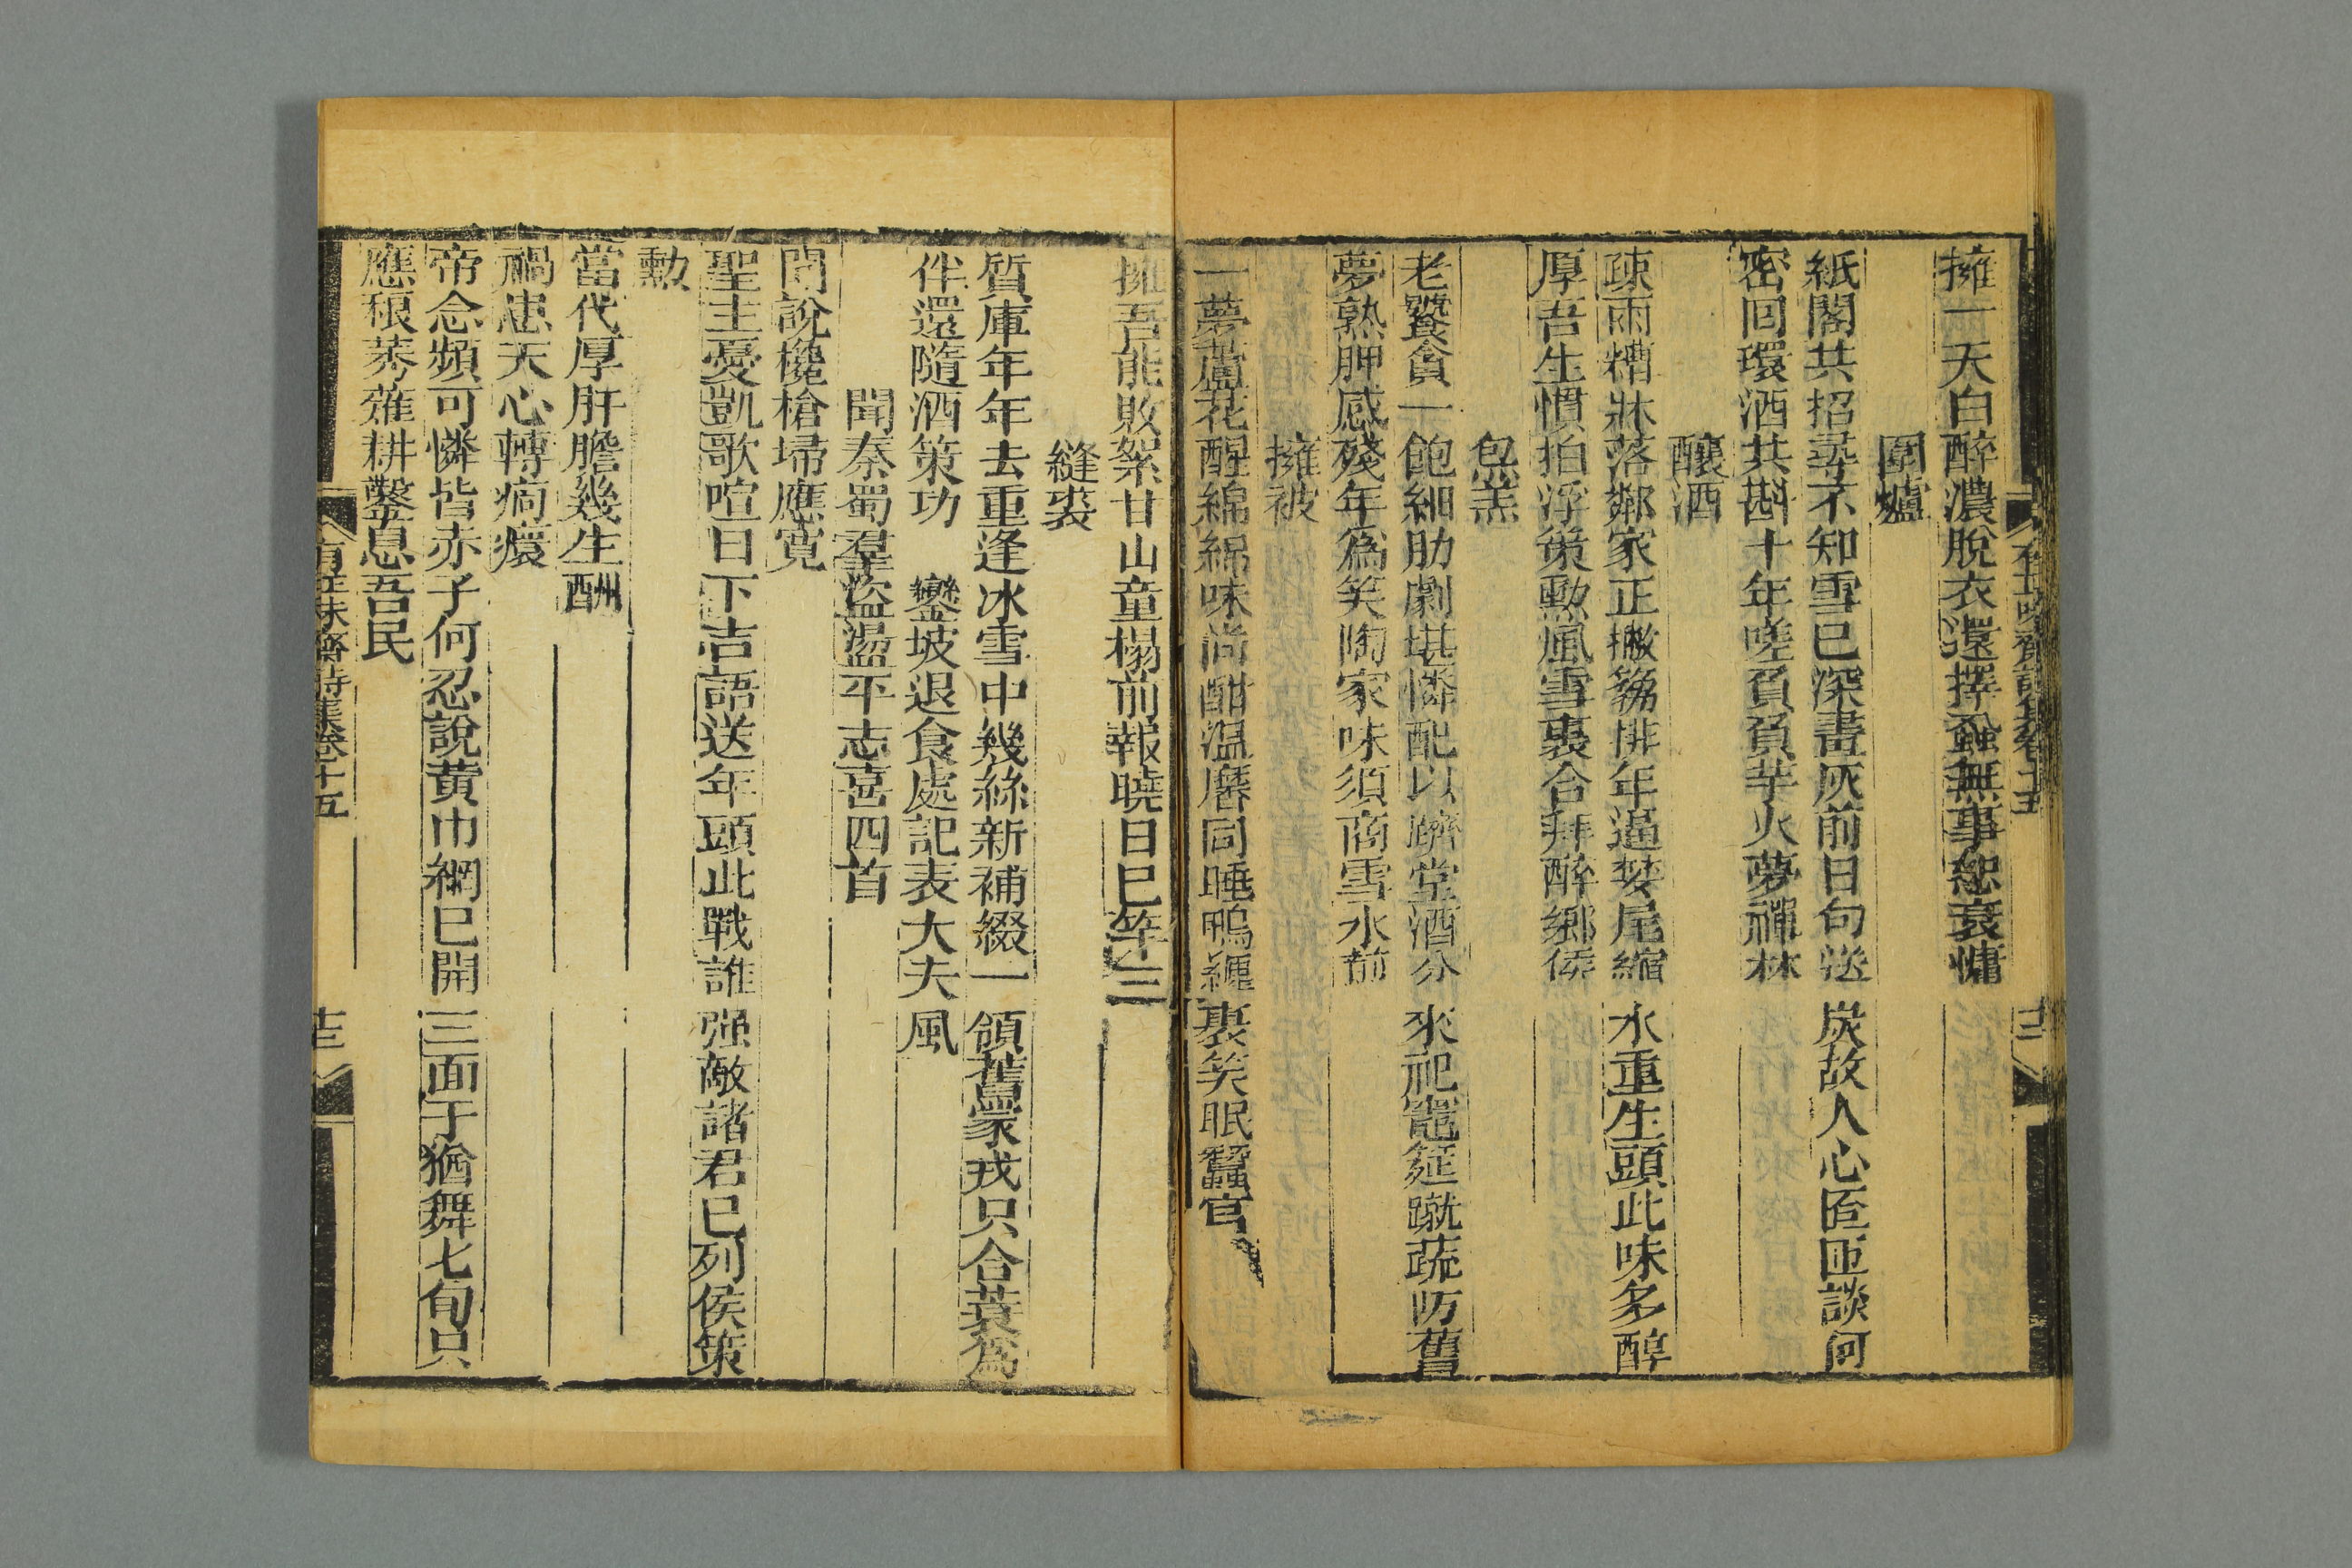 擁一天白醉濃脫衣還擇蝨無事恕衰慵
圍爐
紙閣共招尋不知雪已深畫灰前日句送炭故人心匼匝談何
密回環酒共斟十年嗟負負芋火夢禪林
釀酒
疎雨糟牀落鄰家正撇篘排年逼婪尾縮水重生頭此味多醇
厚吾生慣拍浮策勲風雪裏合拜醉鄉侯
炰羔
老饕貪一飽細肋劇堪憐配以躋堂酒分來祀竈筵蹴蔬防舊
夢熟胛感殘年為笑陶家味須商雪水煎
擁被
一夢蘆花醒綿綿味尚酣溫麐同睡鴨纏裹笑眠蠶官
擁吾能敗絮甘山童榻前報曉日已竿三
縫裘
質庫年年去重逢冰雪中幾絲新補綴一領舊蒙戎只合蓑為
伴還隨酒策功 鑾坡退食處記表大夫風
聞秦蜀羣盜盪平志喜四首
間說欃槍埽應寬
聖主憂凱歌喧日下吉語送年頭此戰誰强敵諸君已列侯策
勲
當代厚肝膽幾生酬
禍患天心轉痌瘝
帝念頻可憐皆赤子何忍說黃巾網已開三面干猶舞七旬只
應稂莠薙耕鑿息吾民
有正味齋詩集卷十五
十三